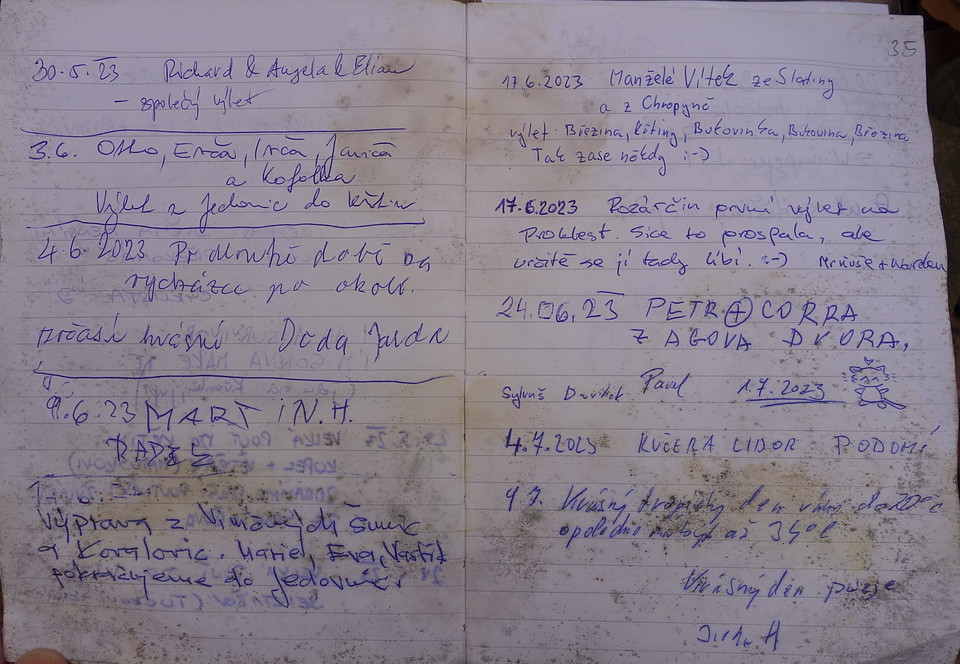 30.5.23 Richard & Angela & Elian
– společný výlet
3.6. Otho, Erča, Irča, Janica
a Kofolka
Výlet z Jedovnic do Křtin
4.6.2023 Po dlouhé době na
vycházce po okolí.
počasí krásné Děda Janda
9.6.23 MARTIN.H.
Výprava z Viničných Šumic
a Kovalovic. Marie, Eva, Vaštík
pokračujeme do Jedovnic.
35
17.6.2023 Manželé Vítek ze Slatiny
a z Chropyně
výlet: Březina, Křtiny, Bukovinka, Bukovina, Březina
Tak zase někdy :-)
17.6.2023 Rozárčin první výlet na
Proklest. Sice to prospala, ale
určitě se jí tady líbí. :-)
24.06.23 PETR A CORRA
Z AGOVA DVORA,
Pavel 1.7.2023
4.7.2023 KUČERA LIBOR PODOMÍ
9 7. Krásný tropický den ráno 20°C
opoledne až 34°C
Krásný den přeje
Jirka H